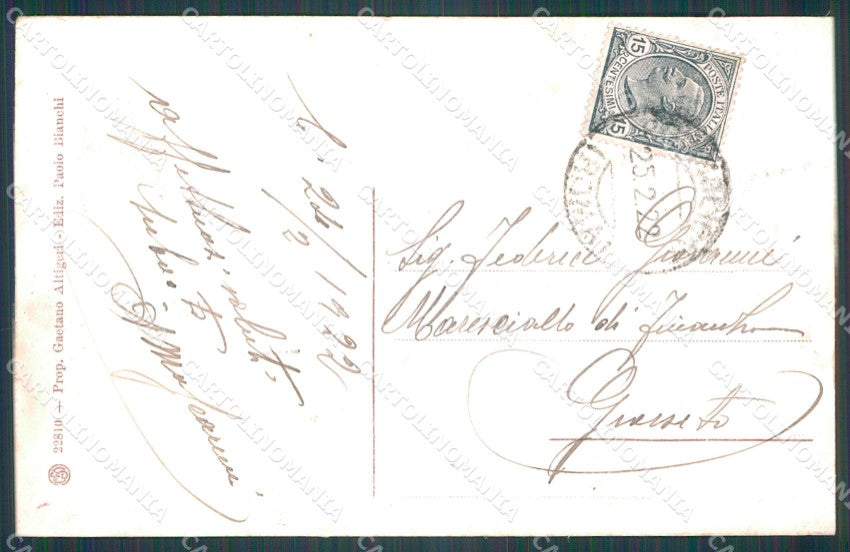 22810 - Prop. Gaetano Altigeri (-) Ediz. Paolo Bianchi
24/2 1922
Affettuosi saluti
POSTE ITALIANE
15 CENTESIMI 15
25.2.22
Sig. Federici Giovanni
Maresciallo di Finanza
Grosseto
CARTOLINOMANIA